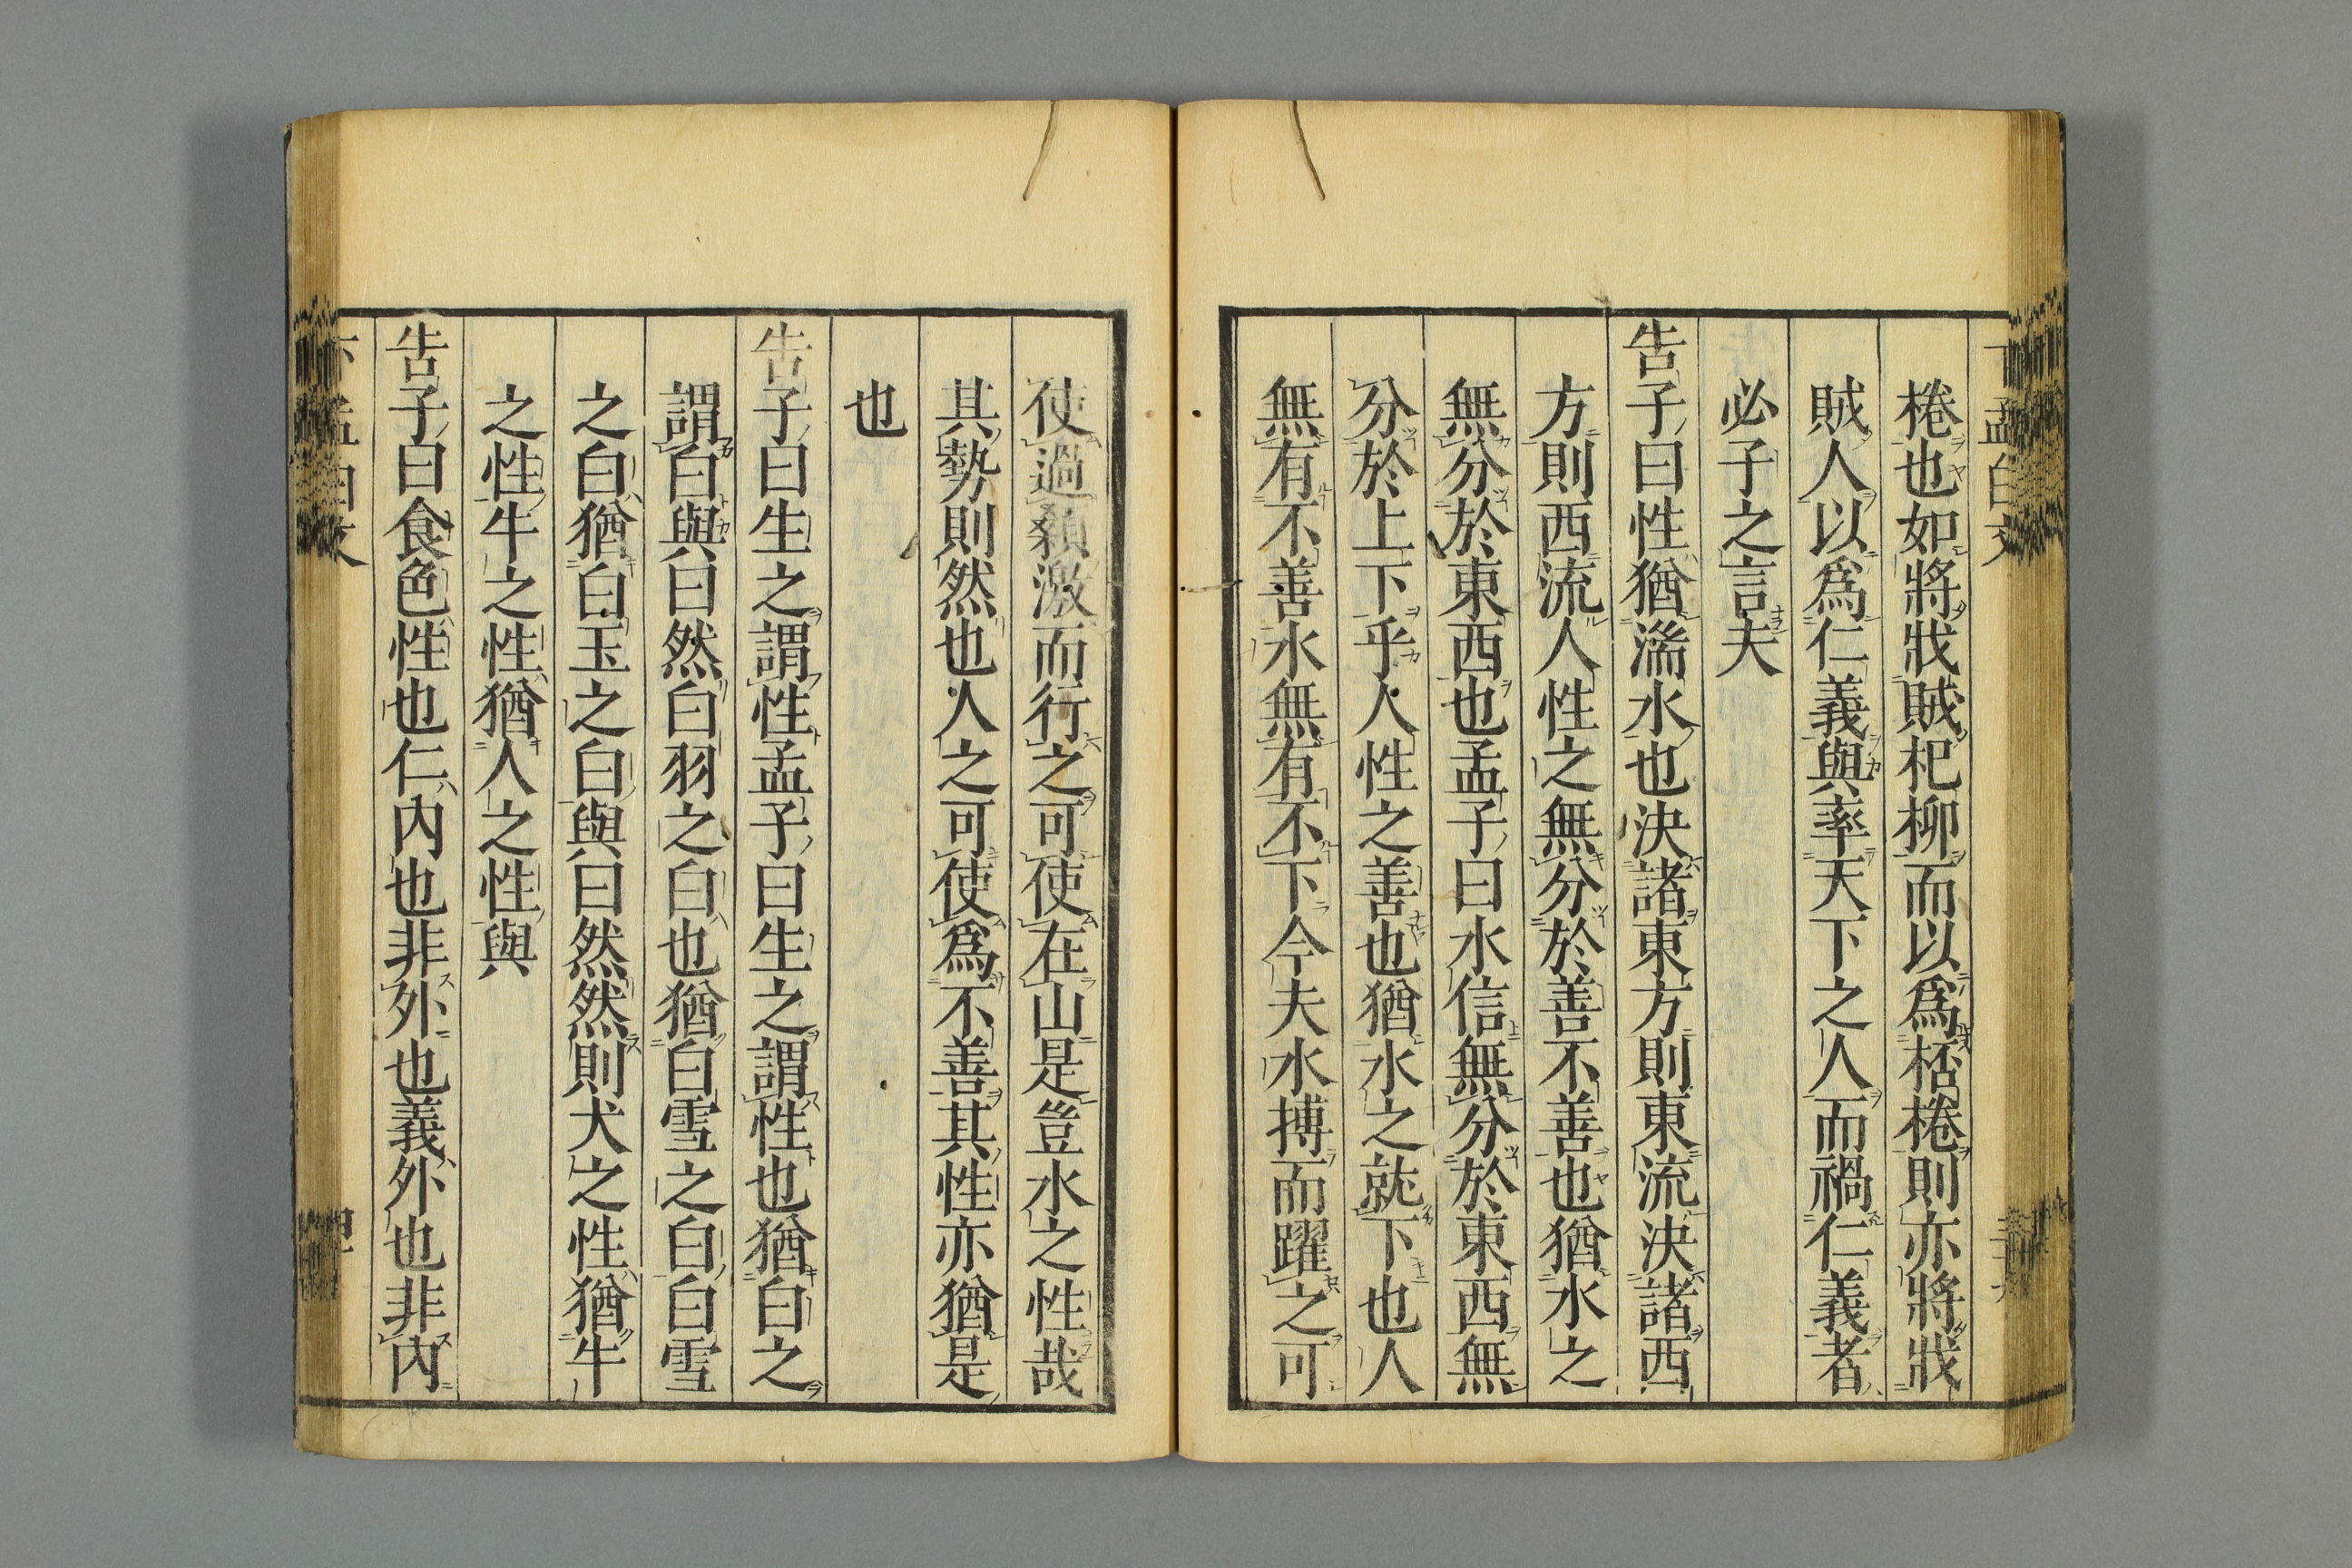 下孟白文
棬也如將戕賊杞柳而以爲桮棬則亦將戕
賊人以爲仁義與率天下之人而禍仁義者
必子之言夫
告子曰性猶湍水也決諸東方則東流決諸西
方則西流人性之無分於善不善也猶水之
無分於東西也孟子曰水信無分於東西無
分於上下乎人性之善也猶水之就下也人
無有不善水無有不下今夫水搏而躍之可
使過顙激而行之可使在山是豈水之性哉
其勢則然也人之可使爲不善其性亦猶是
也
告子曰生之謂性孟子曰生之謂性也猶白之
謂白與曰然白羽之白也猶白雪之白白雪
之白猶白玉之白與曰然然則犬之性猶牛
之性牛之性猶人之性與
告子曰食色性也仁內也非外也義外也非內